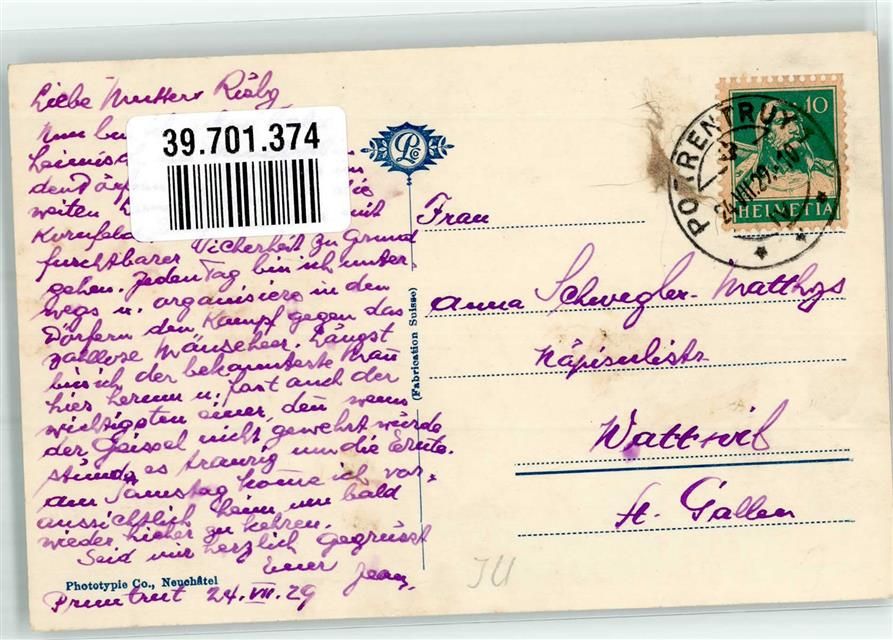 Liebe Mutter
Nun
heimis
den Dörf
weiten
Kornfel
furchtbarer Sicherheit zu Grund
gehen. Jeden Tag bin ich unter
wegs u. organisiere in den
Dörfern den Kampf gegen das
zallose Mäuseheer. Längst
bin ich der bekannteste Mann
hier herum u. fast auch der
wichtigsten einer, den wenn
der Geissel nicht gewehrt würde
stünde es traurig um die Ernte.
am Samstag kome ich vor-
aussichtlich heim um bald
wieder hieher zu kehren.
Seid mir herzlich gegrüsst
Euer Jean
Pruntrut 24. VII. 29
39.701.374
L Co
Phototypie Co., Neuchâtel
(Fabrication Suisse)
PORRENTRUY
24.VII.29.-10
10
HELVETIA
Frau
Anna Schwegler-Matthys
Wattwil
St. Gallen
JU